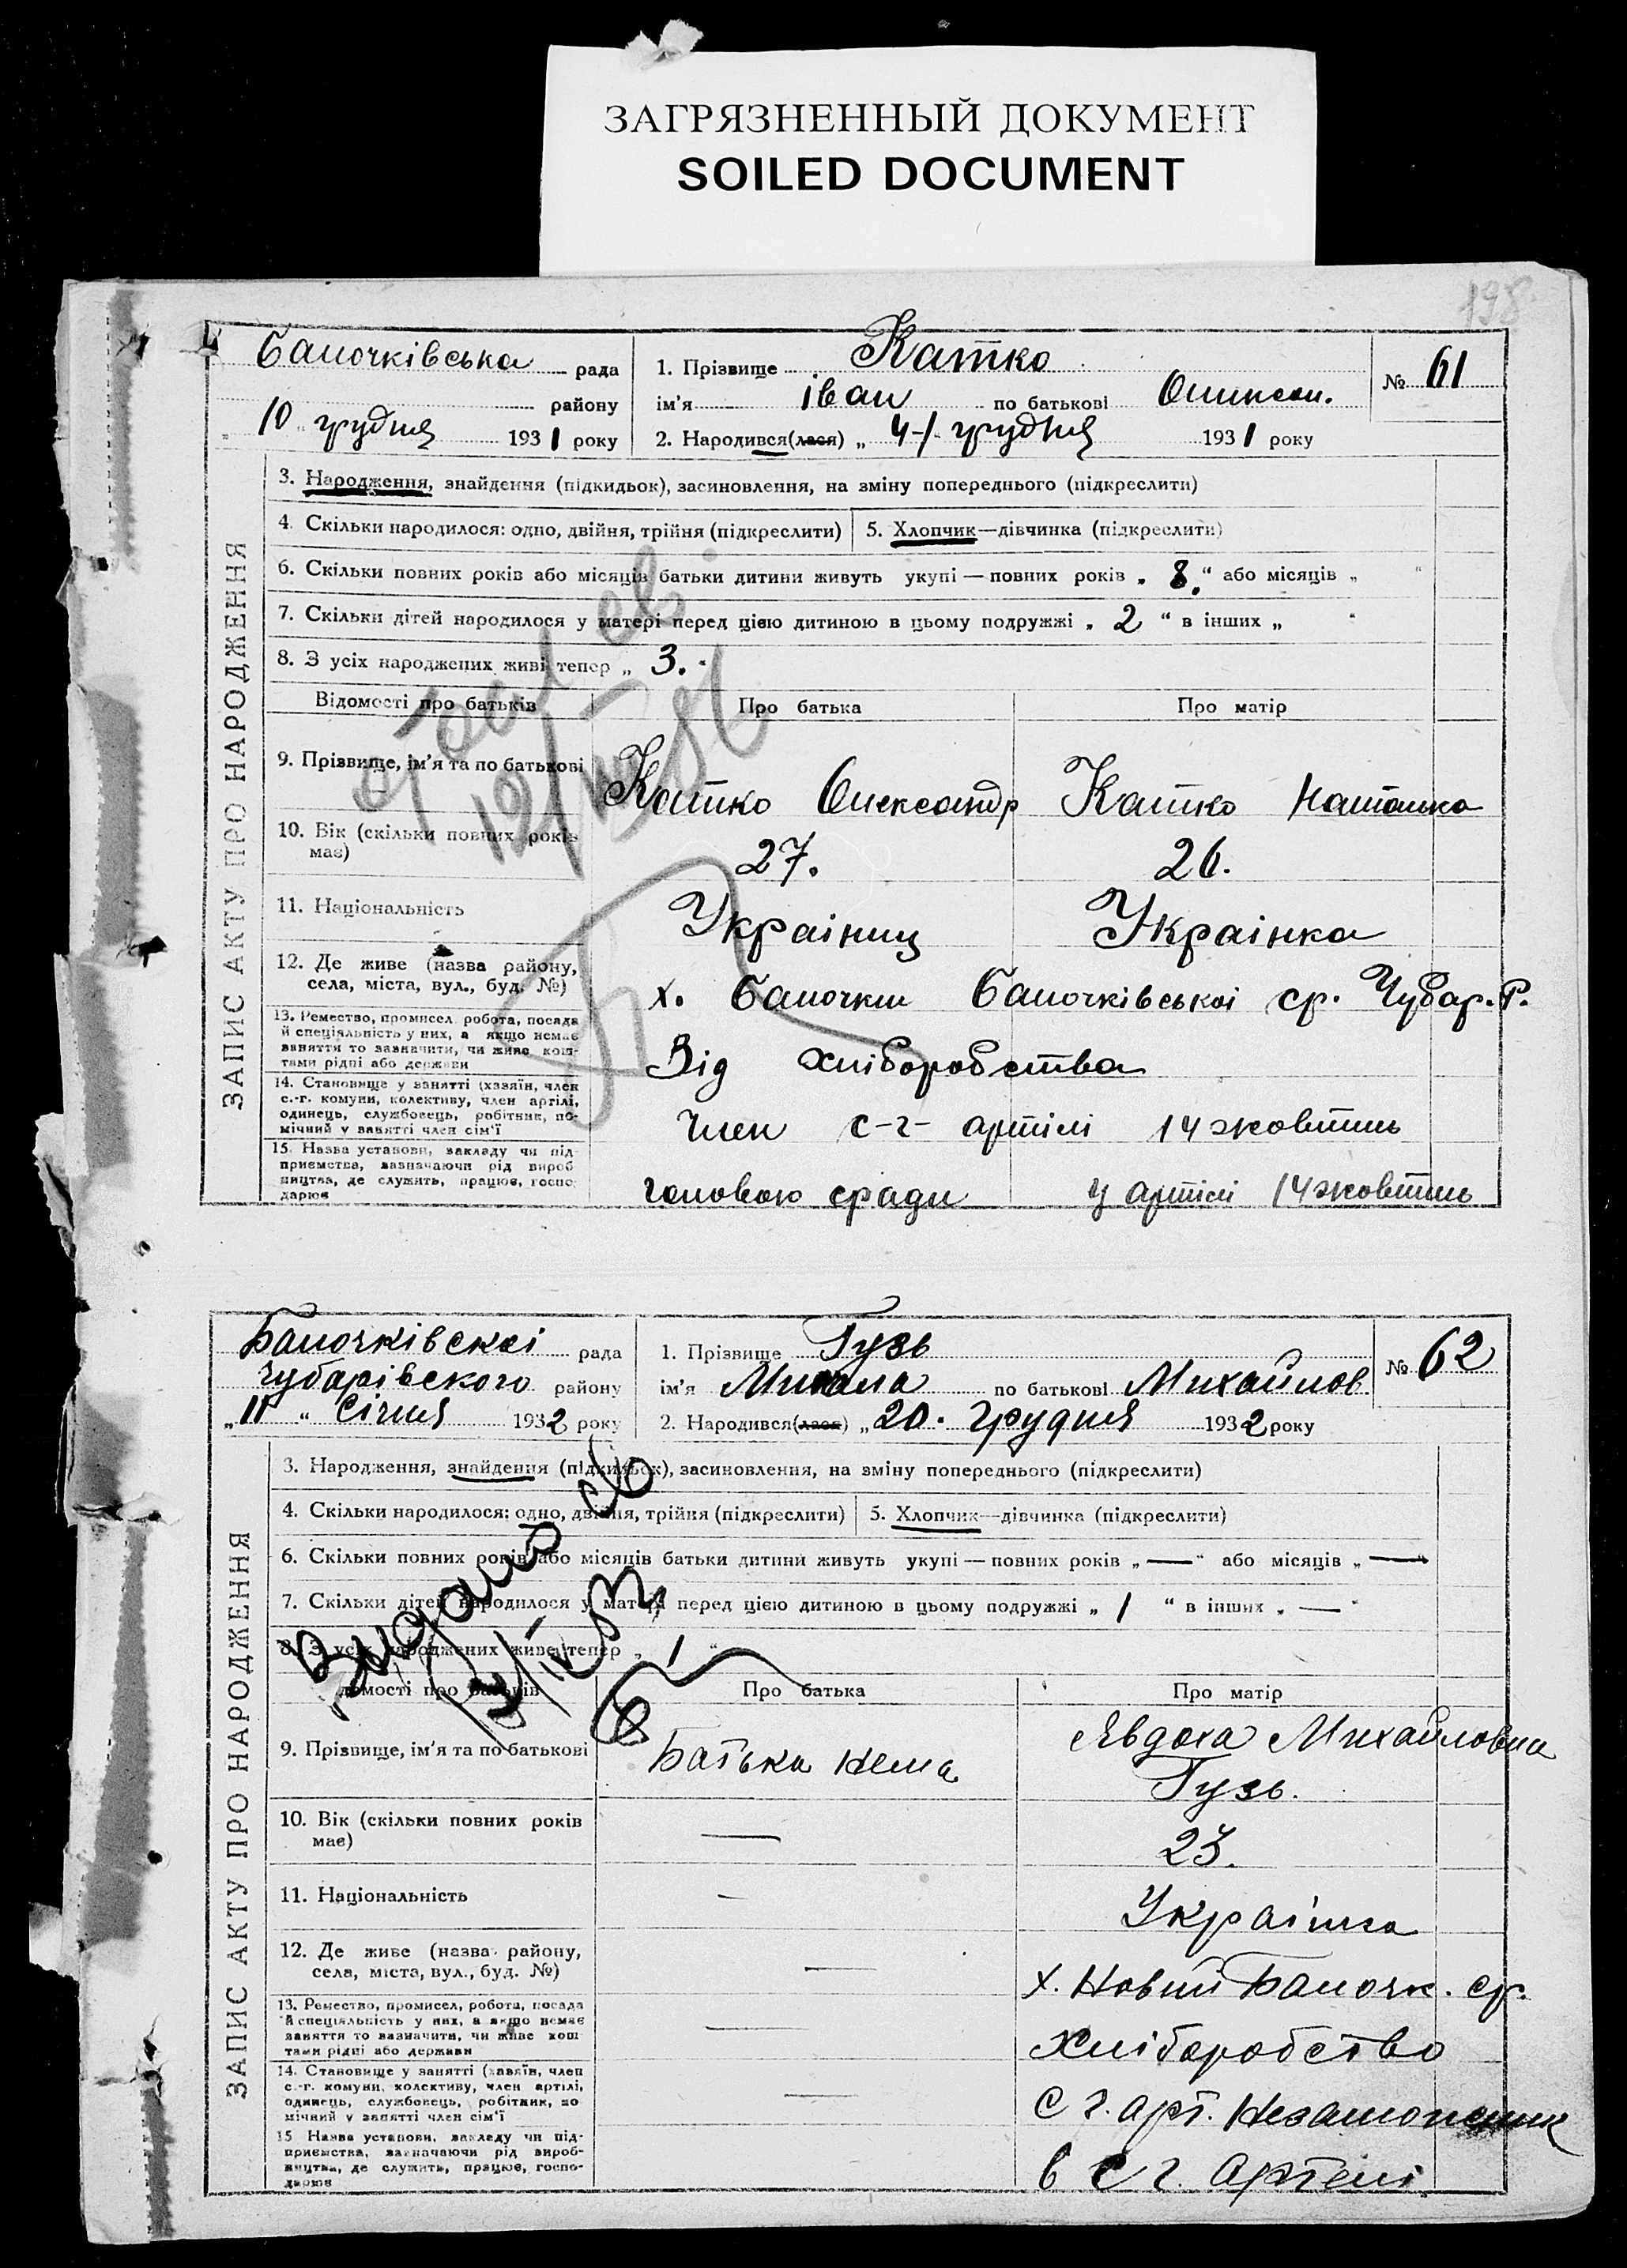 ЗАГРЯЗНЕННЫЙ ДОКУМЕНТ
SOILED DOCUMENT
198
Балочківська рада
району
"10" грудня 1931 року
1. Прізвище Катко
ім'я Іван по батькові Олексан.
2. Народився(лася) „4-/ грудня 1931 року
№ 61
ЗАПИС АКТУ ПРО НАРОДЖЕННЯ
3. Народження, знайдення (підкидьок), засиновлення, на зміну попереднього (підкреслити)
4. Скільки народилося: одно, двійня, трійня (підкреслити) 5. Хлопчик—дівчинка (підкреслити)
6. Скільки повних років або місяців батьки дитини живуть укупі — повних років „8." або місяців „ "
7. Скільки дітей народилося у матері перед цією дитиною в цьому подружжі „2" в інших „ "
8. З усіх народжених живі тепер „3.
Відомості про батьків Про батька Про матір
9. Прізвище, ім'я та по батькові Катко Олександр Катко Наталка
10. Вік (скільки повних років має) 27. 26.
11. Національність Українец Українка
12. Де живе (назва району, села, міста, вул., буд. №) х. Балочки Балочківської ср. Чубар. Р.
13. Ремество, промисел, робота, посада й спеціяльність у них, а якщо немає заняття то зазначити, чи живе коштами рідні або держави Від хліборобства
14. Становище у занятті (хазяїн, член с.-г. комуни, колективу, член артілі, одинець, службовець, робітник, помічний у занятті член сім'ї Член с-г- артілі 14 жовтень
15. Назва установи, закладу чи підприємства, зазначаючи рід виробництва, де служить, працює, господарює головою сради у артілі 14 жовтень
Балочківскої рада
Чубарівского району
„11" Січня 1932 року
1. Прізвище Гузь
ім'я Микола по батькові Михайлов.
2. Народився(лася) „20. Грудня 1932 року
№ 62
ЗАПИС АКТУ ПРО НАРОДЖЕННЯ
3. Народження, знайдення (підкидьок), засиновлення, на зміну попереднього (підкреслити)
4. Скільки народилося: одно, двійня, трійня (підкреслити) 5. Хлопчик—дівчинка (підкреслити)
6. Скільки повних років або місяців батьки дитини живуть укупі — повних років „—" або місяців „—"
7. Скільки дітей народилося у матері перед цією дитиною в цьому подружжі „1" в інших „—"
8. З усіх народжених живе тепер „1"
домості про батьків Про батька Про матір
9. Прізвище, ім'я та по батькові Батька нема Явдоха Михайловна
Гузь.
10. Вік (скільки повних років має) — 23.
11. Національність — Українка
12. Де живе (назва району, села, міста, вул., буд. №) — х. Новий Балочк. ср.
13. Ремество, промисел, робота, посада й спеціяльність у них, а якщо немає заняття то вазначити, чи живе коштами рідні або держави — Хліборобство
14. Становище у занятті (хазяїн, член с.-г. комуни, колективу, член артілі, одинець, службовець, робітник, помічний у занятті член сім'ї — С г. арт. Незаможник
15 Назва установи, закладу чи підприємства, зазначаючи рід виробництва, де служить, працює, господарює в С г. Артелі